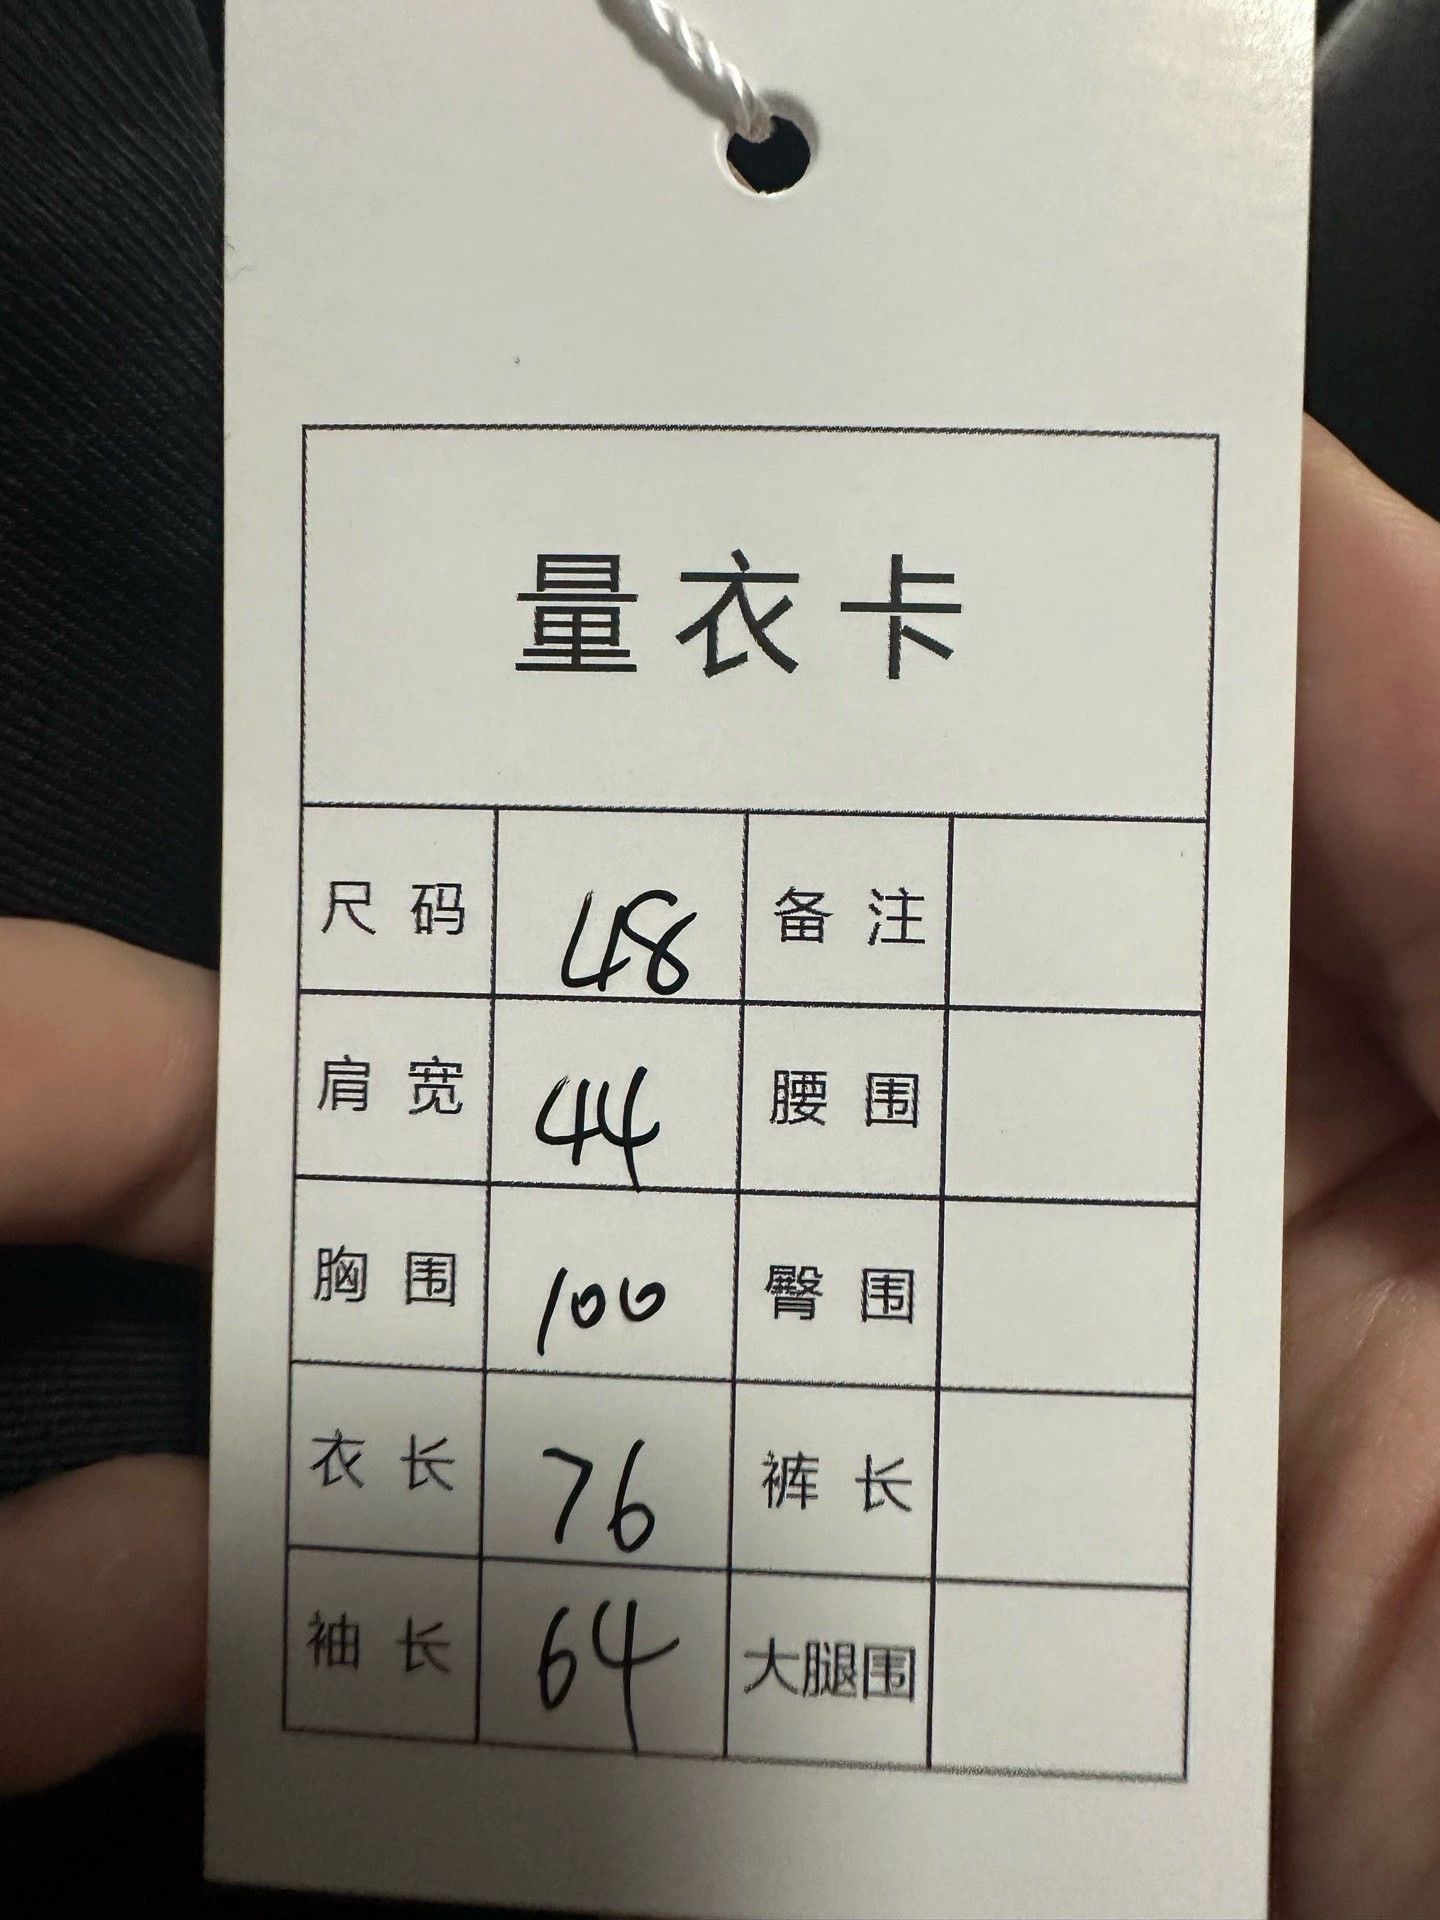 量衣卡
尺码 48 备注
肩宽 44 腰围
胸围 100 臀围
衣长 76 裤长
袖长 64 大腿围